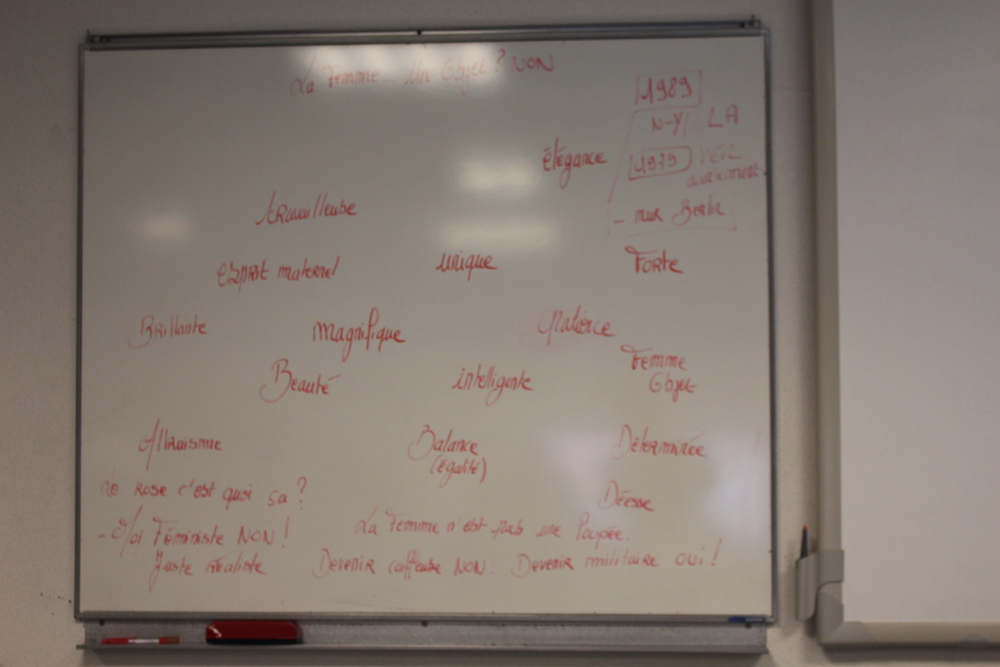 La Femme... Un Objet ? NON
1989
N-Y LA
élégance
1975 VEIL
travailleuse
- mur Berlin
esprit maternel
unique
Forte
Brillante
magnifique
Patience
Beauté
intelligente
Femme
Objet
Altruisme
Balance
(égalité)
Déterminée
Le Rose c'est quoi ça ?
Déesse
- Moi Féministe NON !
La Femme n'est pas une Poupée.
Juste réaliste
Devenir coiffeuse NON ! Devenir militaire oui !